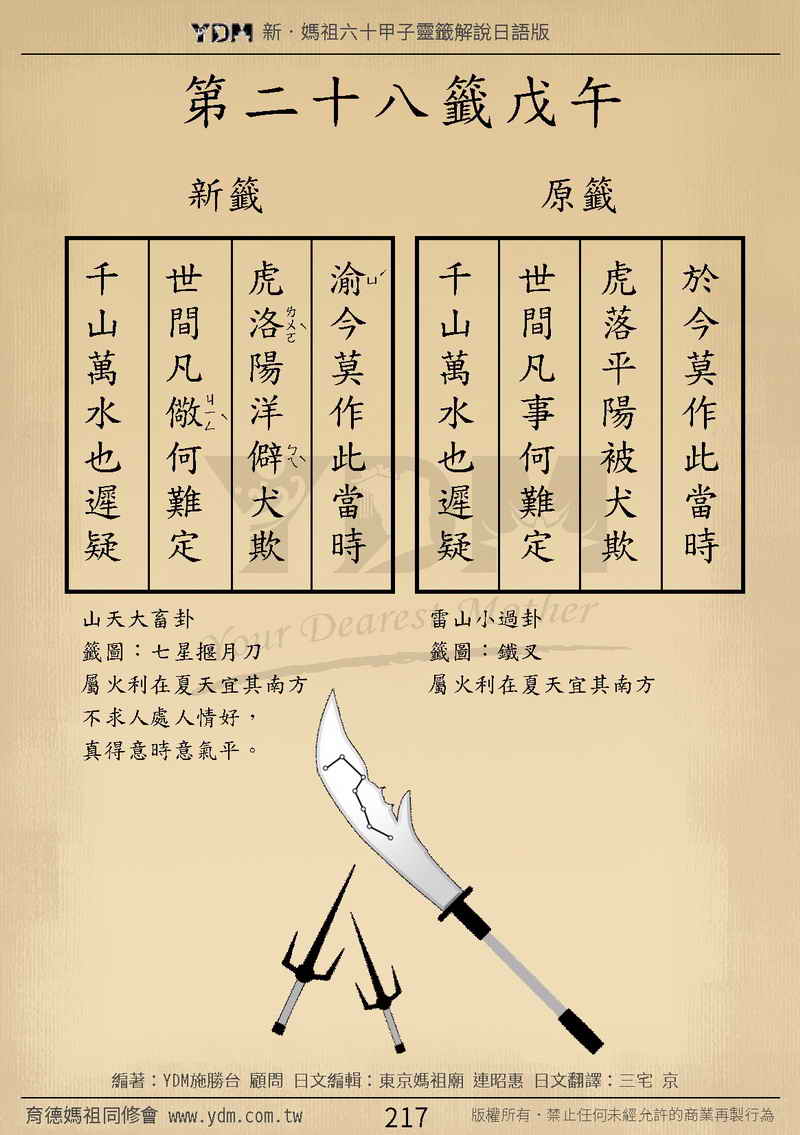 YDM 新．媽祖六十甲子靈籤解說日語版
第二十八籤戊午
原籤
於今莫作此當時
虎落平陽被犬欺
世間凡事何難定
千山萬水也遲疑
雷山小過卦
籤圖：鐵叉
屬火利在夏天宜其南方
新籤
渝ㄩˊ今莫作此當時
虎洛ㄌㄨㄛˋ陽洋僻ㄆㄧˋ犬欺
世間凡儆ㄐㄧㄥˋ何難定
千山萬水也遲疑
山天大畜卦
籤圖：七星揠月刀
屬火利在夏天宜其南方
不求人處人情好，
真得意時意氣平。
YDM
Your Dearest Mother
編著：YDM施勝台 顧問 日文編輯：東京媽祖廟 連昭惠 日文翻譯：三宅 京
育德媽祖同修會 www.ydm.com.tw 217 版權所有．禁止任何未經允許的商業再製行為